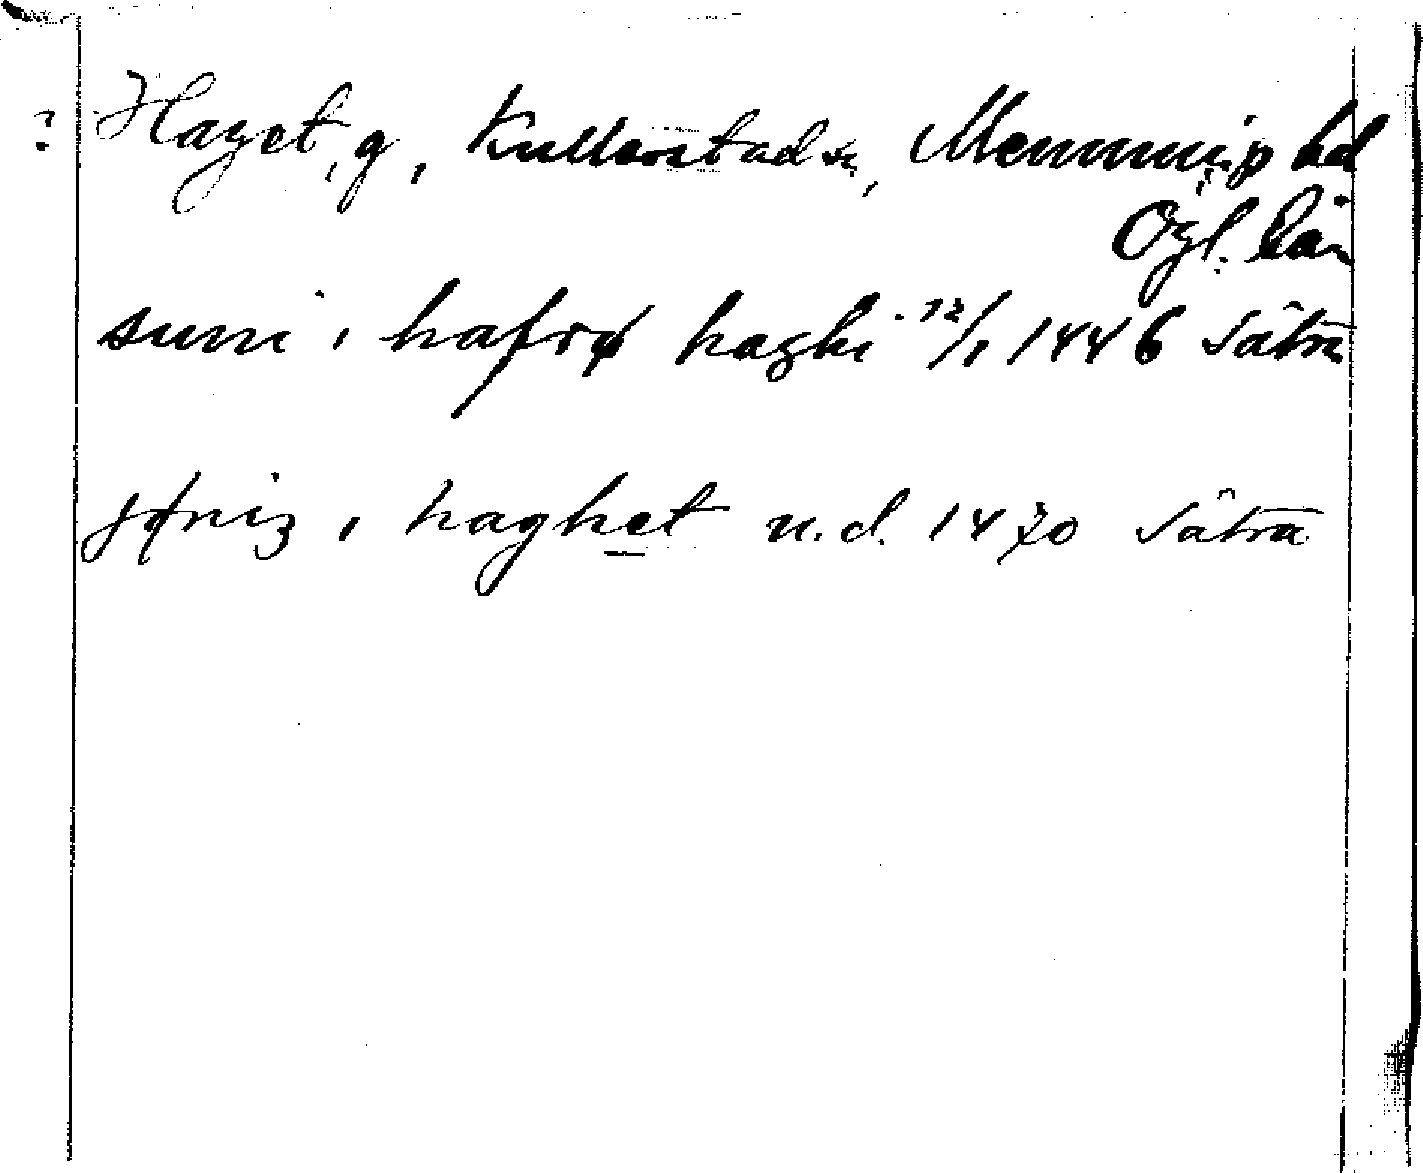 ? Haget, g, Kullerstad sn, Memmings hd
Ögl. län
suni i hafrø haghi 12/1 1446 Sätra
jønis i haghet u.d. 1470 Sätra